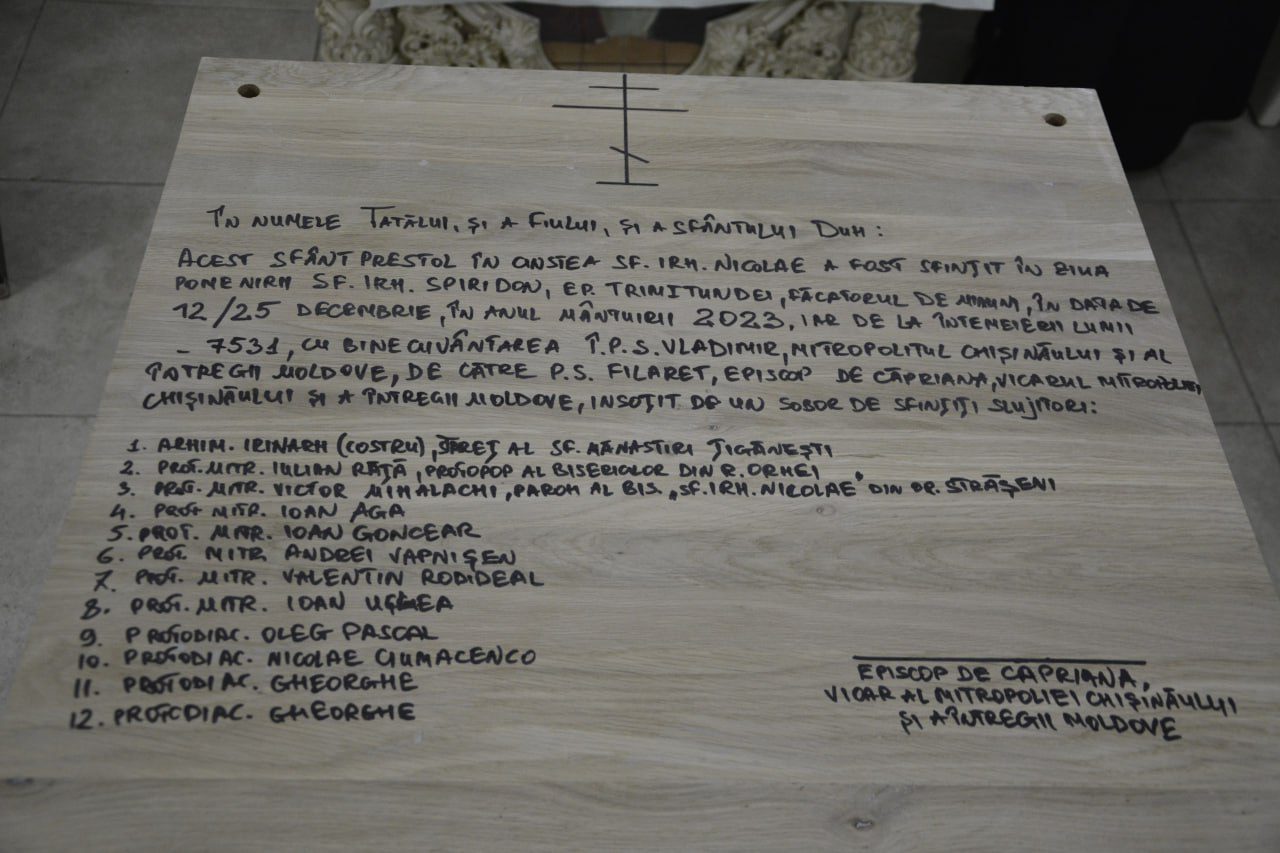 ÎN NUMELE TATĂLUI, ȘI A FIULUI, ȘI A SFÂNTULUI DUH:
ACEST SFÂNT PRESTOL ÎN CINSTEA SF. IRH. NICOLAE A FOST SFINȚIT ÎN ZIUA
POMENIRII SF. IRH. SPIRIDON, EP. TRIMITUNDEI, FĂCATORUL DE MINUNI, ÎN DATA DE
12/25 DECEMBRIE, ÎN ANUL MÂNTUIRII 2023, IAR DE LA ÎNTEMEIERII LUMII
- 7531, CU BINECUVÂNTAREA Î.P.S. VLADIMIR, MITROPOLITUL CHIȘINĂULUI ȘI AL
ÎNTREGII MOLDOVE, DE CĂTRE P.S. FILARET, EPISCOP DE CĂPRIANA, VICARUL MITROPOLIEI
CHIȘINĂULUI ȘI A ÎNTREGII MOLDOVE, INSOȚIT DE UN SOBOR DE SFINȚIȚI SLUJITORI:
1. ARHIM. IRINARH (COSTRU), STAREȚ AL SF. MĂNASTIRI ȚIGĂNEȘTI
2. PROT. MITR. IULIAN RAȚĂ, PROTOPOP AL BISERICILOR DIN R. ORHEI
3. PROT. MITR. VICTOR MIHALACHI, PAROH AL BIS. „SF. IRH. NICOLAE" DIN OR. STRĂȘENI
4. PROT MITR. IOAN AGA
5. PROT. MITR. IOAN GONCEAR
6. PROT. MITR. ANDREI VAPNIȘEN
7. PROT. MITR. VALENTIN RODIDEAL
8. PROT. MITR. IOAN
9. PROTODIAC. OLEG PASCAL
10. PROTODIAC. NICOLAE CIUMACENCO
11. PROTODIAC. GHEORGHE
12. PROTODIAC. GHEORGHE
EPISCOP DE CAPRIANA,
VICAR AL MITROPOLIEI CHIȘINĂULUI
ȘI A ÎNTREGII MOLDOVE